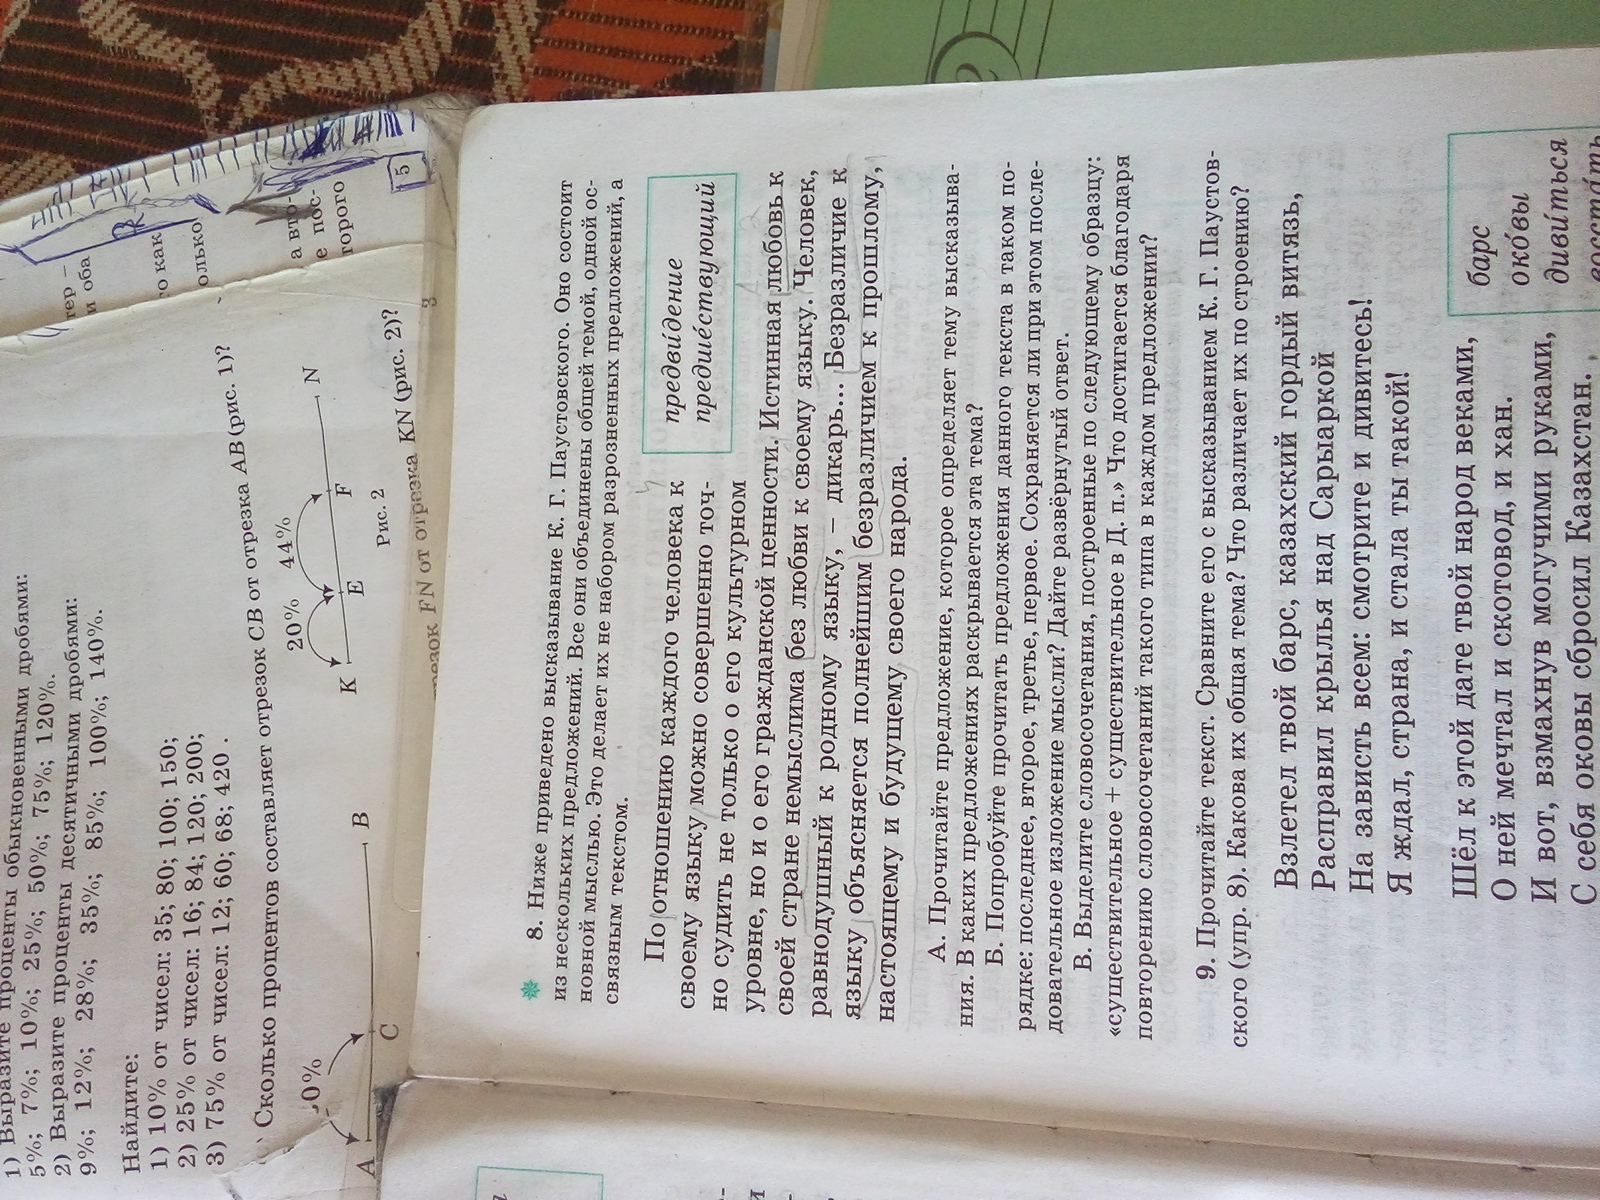 1) Выразите проценты обыкновенными дробями:
5%; 7%; 10%; 25%; 50%; 75%; 120%.
2) Выразите проценты десятичными дробями:
9%; 12%; 28%; 35%; 85%; 100%; 140%.
Найдите:
1) 10% от чисел: 35; 80; 100; 150;
2) 25% от чисел: 16; 84; 120; 200;
3) 75% от чисел: 12; 60; 68; 420 .
Сколько процентов составляет отрезок CB от отрезка AB (рис. 1)?
0%
A
C
B
20%
44%
K
E
F
N
Рис. 2
FN от отрезка KN (рис. 2)?
и оба
5
8. Ниже приведено высказывание К. Г. Паустовского. Оно состоит
из нескольких предложений. Все они объединены общей темой, одной ос-
новной мыслью. Это делает их не набором разрозненных предложений, а
связным текстом.
предви́дение
предше́ствующий
По отношению каждого человека к
своему языку можно совершенно точ-
но судить не только о его культурном
уровне, но и о его гражданской ценности. Истинная любовь к
своей стране немыслима без любви к своему языку. Человек,
равнодушный к родному языку, – дикарь... Безразличие к
языку объясняется полнейшим безразличием к прошлому,
настоящему и будущему своего народа.
А. Прочитайте предложение, которое определяет тему высказыва-
ния. В каких предложениях раскрывается эта тема?
Б. Попробуйте прочитать предложения данного текста в таком по-
рядке: последнее, второе, третье, первое. Сохраняется ли при этом после-
довательное изложение мысли? Дайте развёрнутый ответ.
В. Выделите словосочетания, построенные по следующему образцу:
«существительное + существительное в Д. п.» Что достигается благодаря
повторению словосочетаний такого типа в каждом предложении?
9. Прочитайте текст. Сравните его с высказыванием К. Г. Паустов-
ского (упр. 8). Какова их общая тема? Что различает их по строению?
Взлетел твой барс, казахский гордый витязь,
Расправил крылья над Сарыаркой
На зависть всем: смотрите и дивитесь!
Я ждал, страна, и стала ты такой!
барс
око́вы
диви́ться
восста́ть
Шёл к этой дате твой народ веками,
О ней мечтал и скотовод, и хан.
И вот, взмахнув могучими руками,
С себя оковы сбросил Казахстан.